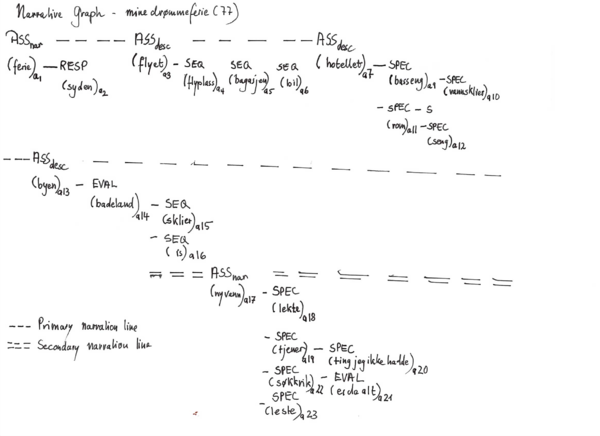 Narrative Graph - mine drømmeferie (77)
ASSnar --- ASSdesc --- ASSdesc
(ferie)a1 - RESP (flyet)a3 - SEQ SEQ SEQ (hotellet)a7 - SPEC
(syden)a2 (flyplass)a4 (bagasjen)a5 (bil)a6 (basseng)a9 - SPEC
(vannsklier)a10
- SPEC - S
(rom)a11 - SPEC
(seng)a12
--- ASSdesc
(byen)a13 - EVAL
(badeland)a14 - SEQ
(sklier)a15
- SEQ
(is)a16
=== ASSnar ===
(ny venn)a17 - SPEC
(lekte)a18
- SPEC
(tjener)a19 - SPEC
(ting jeg ikke hadde)a20
- SPEC - EVAL
(søkkrik)a22 (eide alt)a21
- SPEC
(leste)a23
--- Primary narration line
=== Secondary narration line